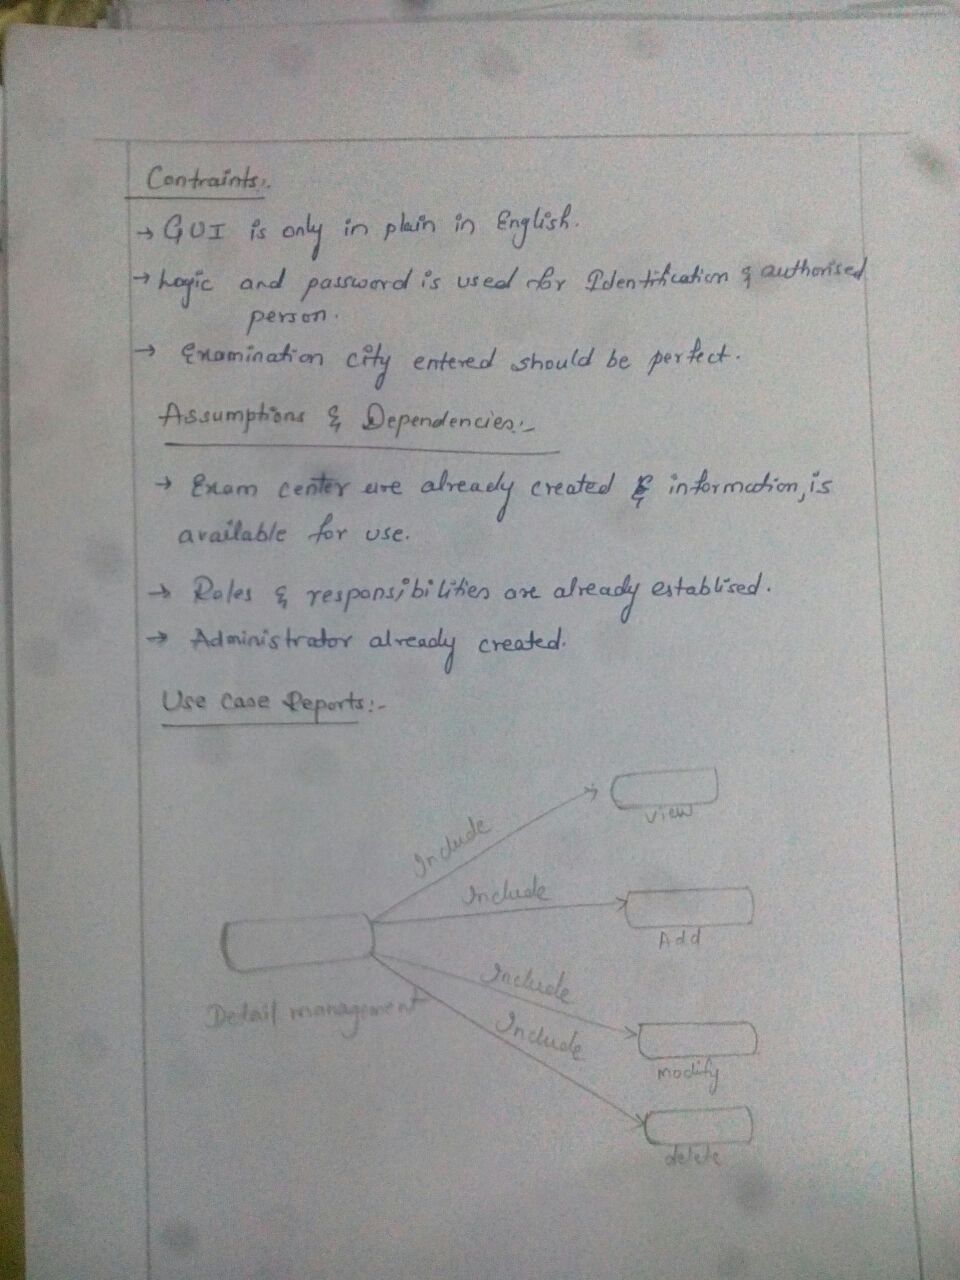 Contraints:-
→ GUI is only in plain in English.
→ Logic and password is used for Identification & authorised
person.
→ Examination city entered should be perfect.
Assumptions & Dependencies:-
→ Exam center are already created & information, is
available for use.
→ Roles & responsibilities are already establised.
→ Administrator already created.
Use Case Reports:-
Include
View
Include
Add
Detail management
Include
modify
Include
delete